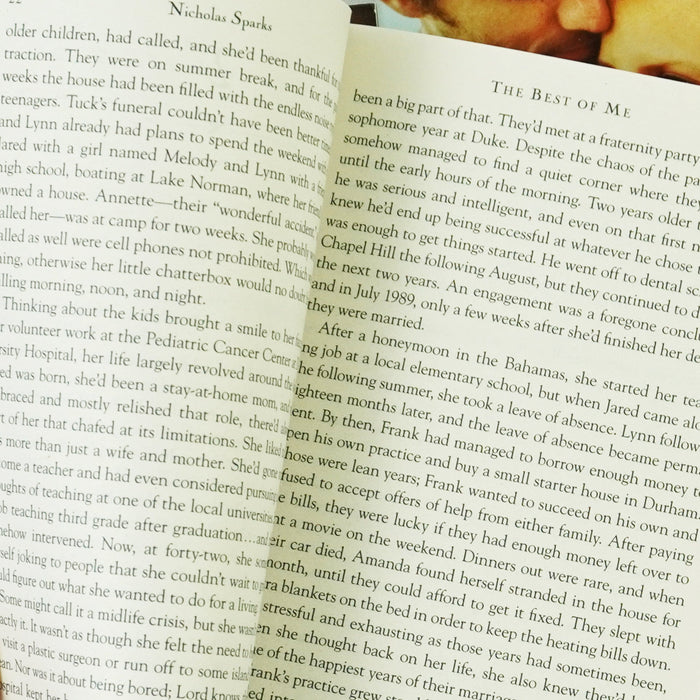 22
Nicholas Sparks
older children, had called, and she'd been thankful for
traction. They were on summer break, and for the
weeks the house had been filled with the endless noise
teenagers. Tuck's funeral couldn't have been better
and Lynn already had plans to spend the weekend with
Jared with a girl named Melody and Lynn with a
high school, boating at Lake Norman, where her
owned a house. Annette—their "wonderful accident,"
called her—was at camp for two weeks. She probably
called as well were cell phones not prohibited. Which
ning, otherwise her little chatterbox would no doubt
lling morning, noon, and night.
Thinking about the kids brought a smile to her
r volunteer work at the Pediatric Cancer Center
rsity Hospital, her life largely revolved around the
ed was born, she'd been a stay-at-home mom, and
braced and mostly relished that role, there'd
rt of her that chafed at its limitations. She liked
s more than just a wife and mother. She'd gone
ome a teacher and had even considered pursuing
oughts of teaching at one of the local universities
b teaching third grade after graduation...and
mehow intervened. Now, at forty-two, she
self joking to people that she couldn't wait to
uld figure out what she wanted to do for a living
Some might call it a midlife crisis, but she
actly it. It wasn't as though she felt the need to
visit a plastic surgeon or run off to some island
an. Nor was it about being bored; Lord knows
spital kept her
THE BEST OF ME
been a big part of that. They'd met at a fraternity party
sophomore year at Duke. Despite the chaos of the
somehow managed to find a quiet corner where they
until the early hours of the morning. Two years older
he was serious and intelligent, and even on that first
knew he'd end up being successful at whatever he chose
was enough to get things started. He went off to dental
Chapel Hill the following August, but they continued to
the next two years. An engagement was a foregone
and in July 1989, only a few weeks after she'd finished her
they were married.
After a honeymoon in the Bahamas, she started her
ng job at a local elementary school, but when Jared came
he following summer, she took a leave of absence. Lynn
ighteen months later, and the leave of absence became
ent. By then, Frank had managed to borrow enough money
pen his own practice and buy a small starter house in Durham.
hose were lean years; Frank wanted to succeed on his own and
fused to accept offers of help from either family. After paying
e bills, they were lucky if they had enough money left over to
nt a movie on the weekend. Dinners out were rare, and when
eir car died, Amanda found herself stranded in the house for
month, until they could afford to get it fixed. They slept with
ra blankets on the bed in order to keep the heating bills down.
stressful and exhausting as those years had sometimes been,
en she thought back on her life, she also knew they'd
ne of the happiest years of their marriage.
rank's practice grew
ed into